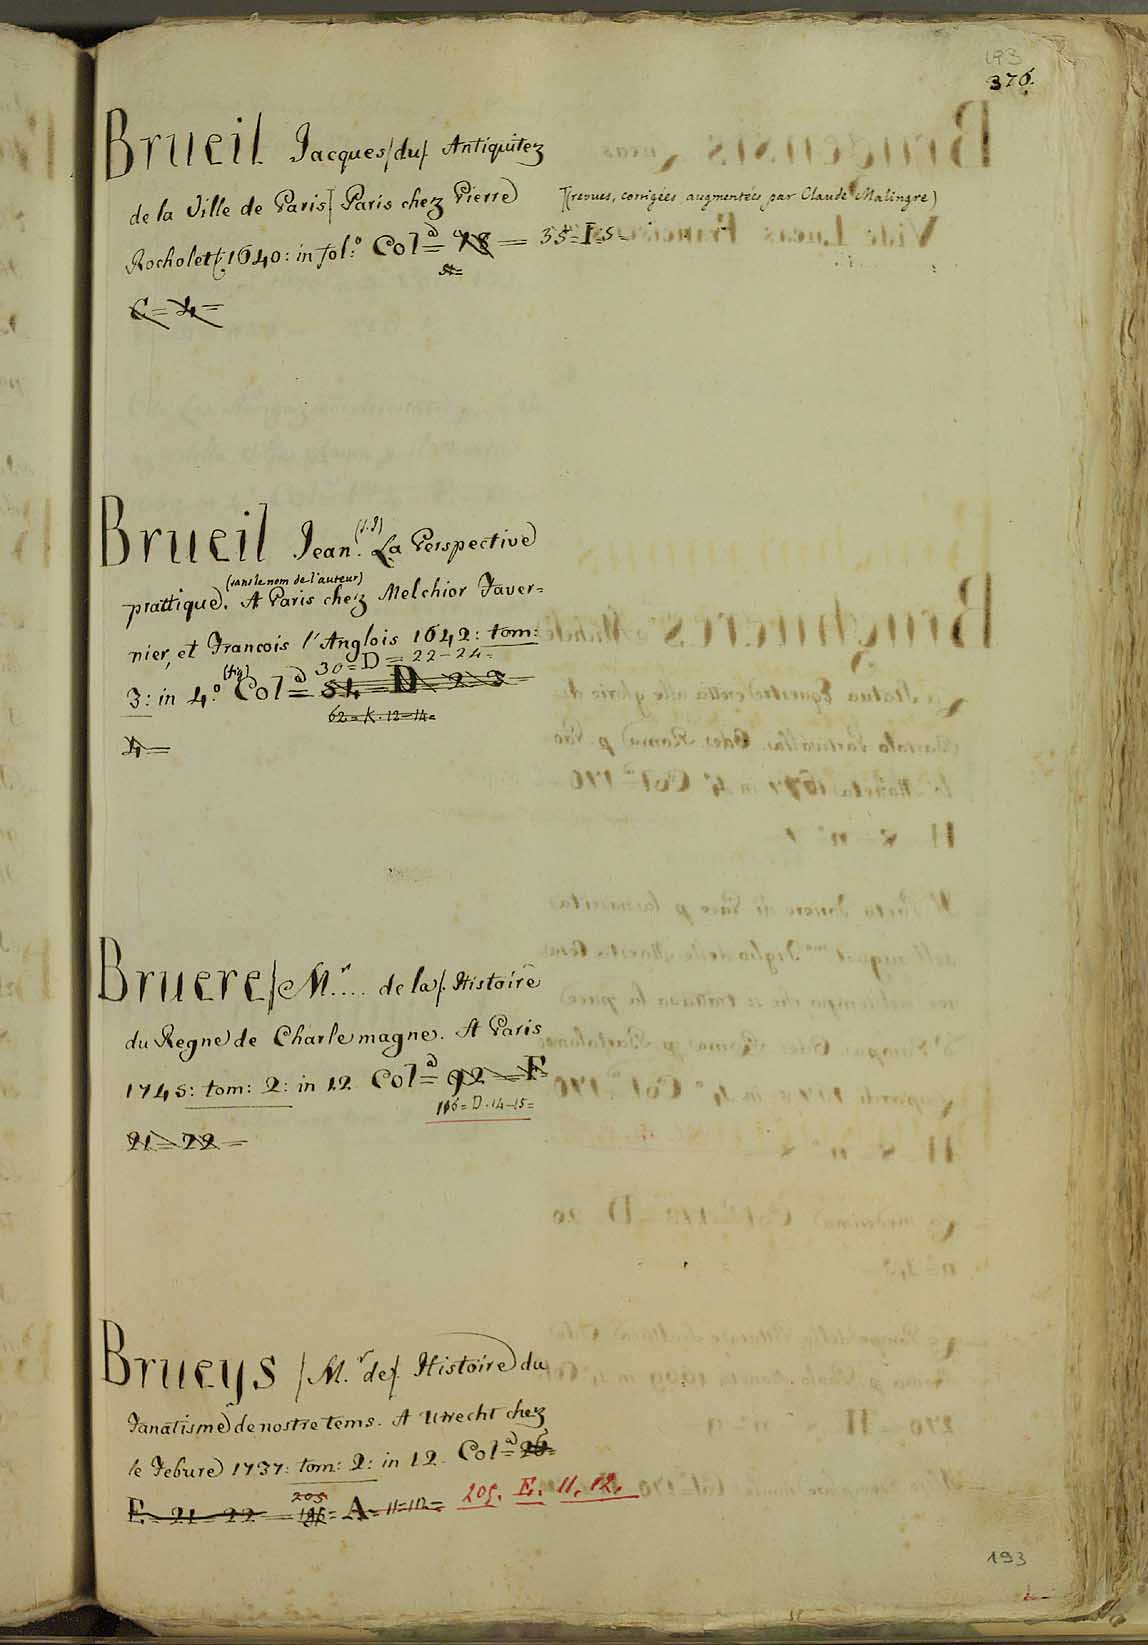 193
376.
Brueil Jacques/du/. Antiquitez
de la Ville de Paris/ Paris chez Pierre
](revues, corrigées augmentées par Claude Malingre)
Rocholet/:1640: in fol:º Col=ª 98 = 35=I=5=
C=4=
Brueil Jean. (S.J) La Perspective
prattique. (sans le nom de l'auteur) A Paris chez Melchior Taver=
nier, et Francois l'Anglois 1642: tom:
30=D=22-24=
3: in 4.º (fig) Col=ª 54=D=2=3=
62=K.12=14=
4=
Bruere/M.r.... de la/. Histoire
du Regne de Charlemagne. A Paris
1745: tom: 2: in 12 Col=ª 92=F
106=D.14-15=
21=22=
Brueys /M.r de/. Histoire du
Fanatisme de nostre tems. A Utrecht chez
le Febure 1737: tom: 2: in 12. Col=ª 26=
205
E=21=22= =A=11=12= 205. E. 11. 12.
193